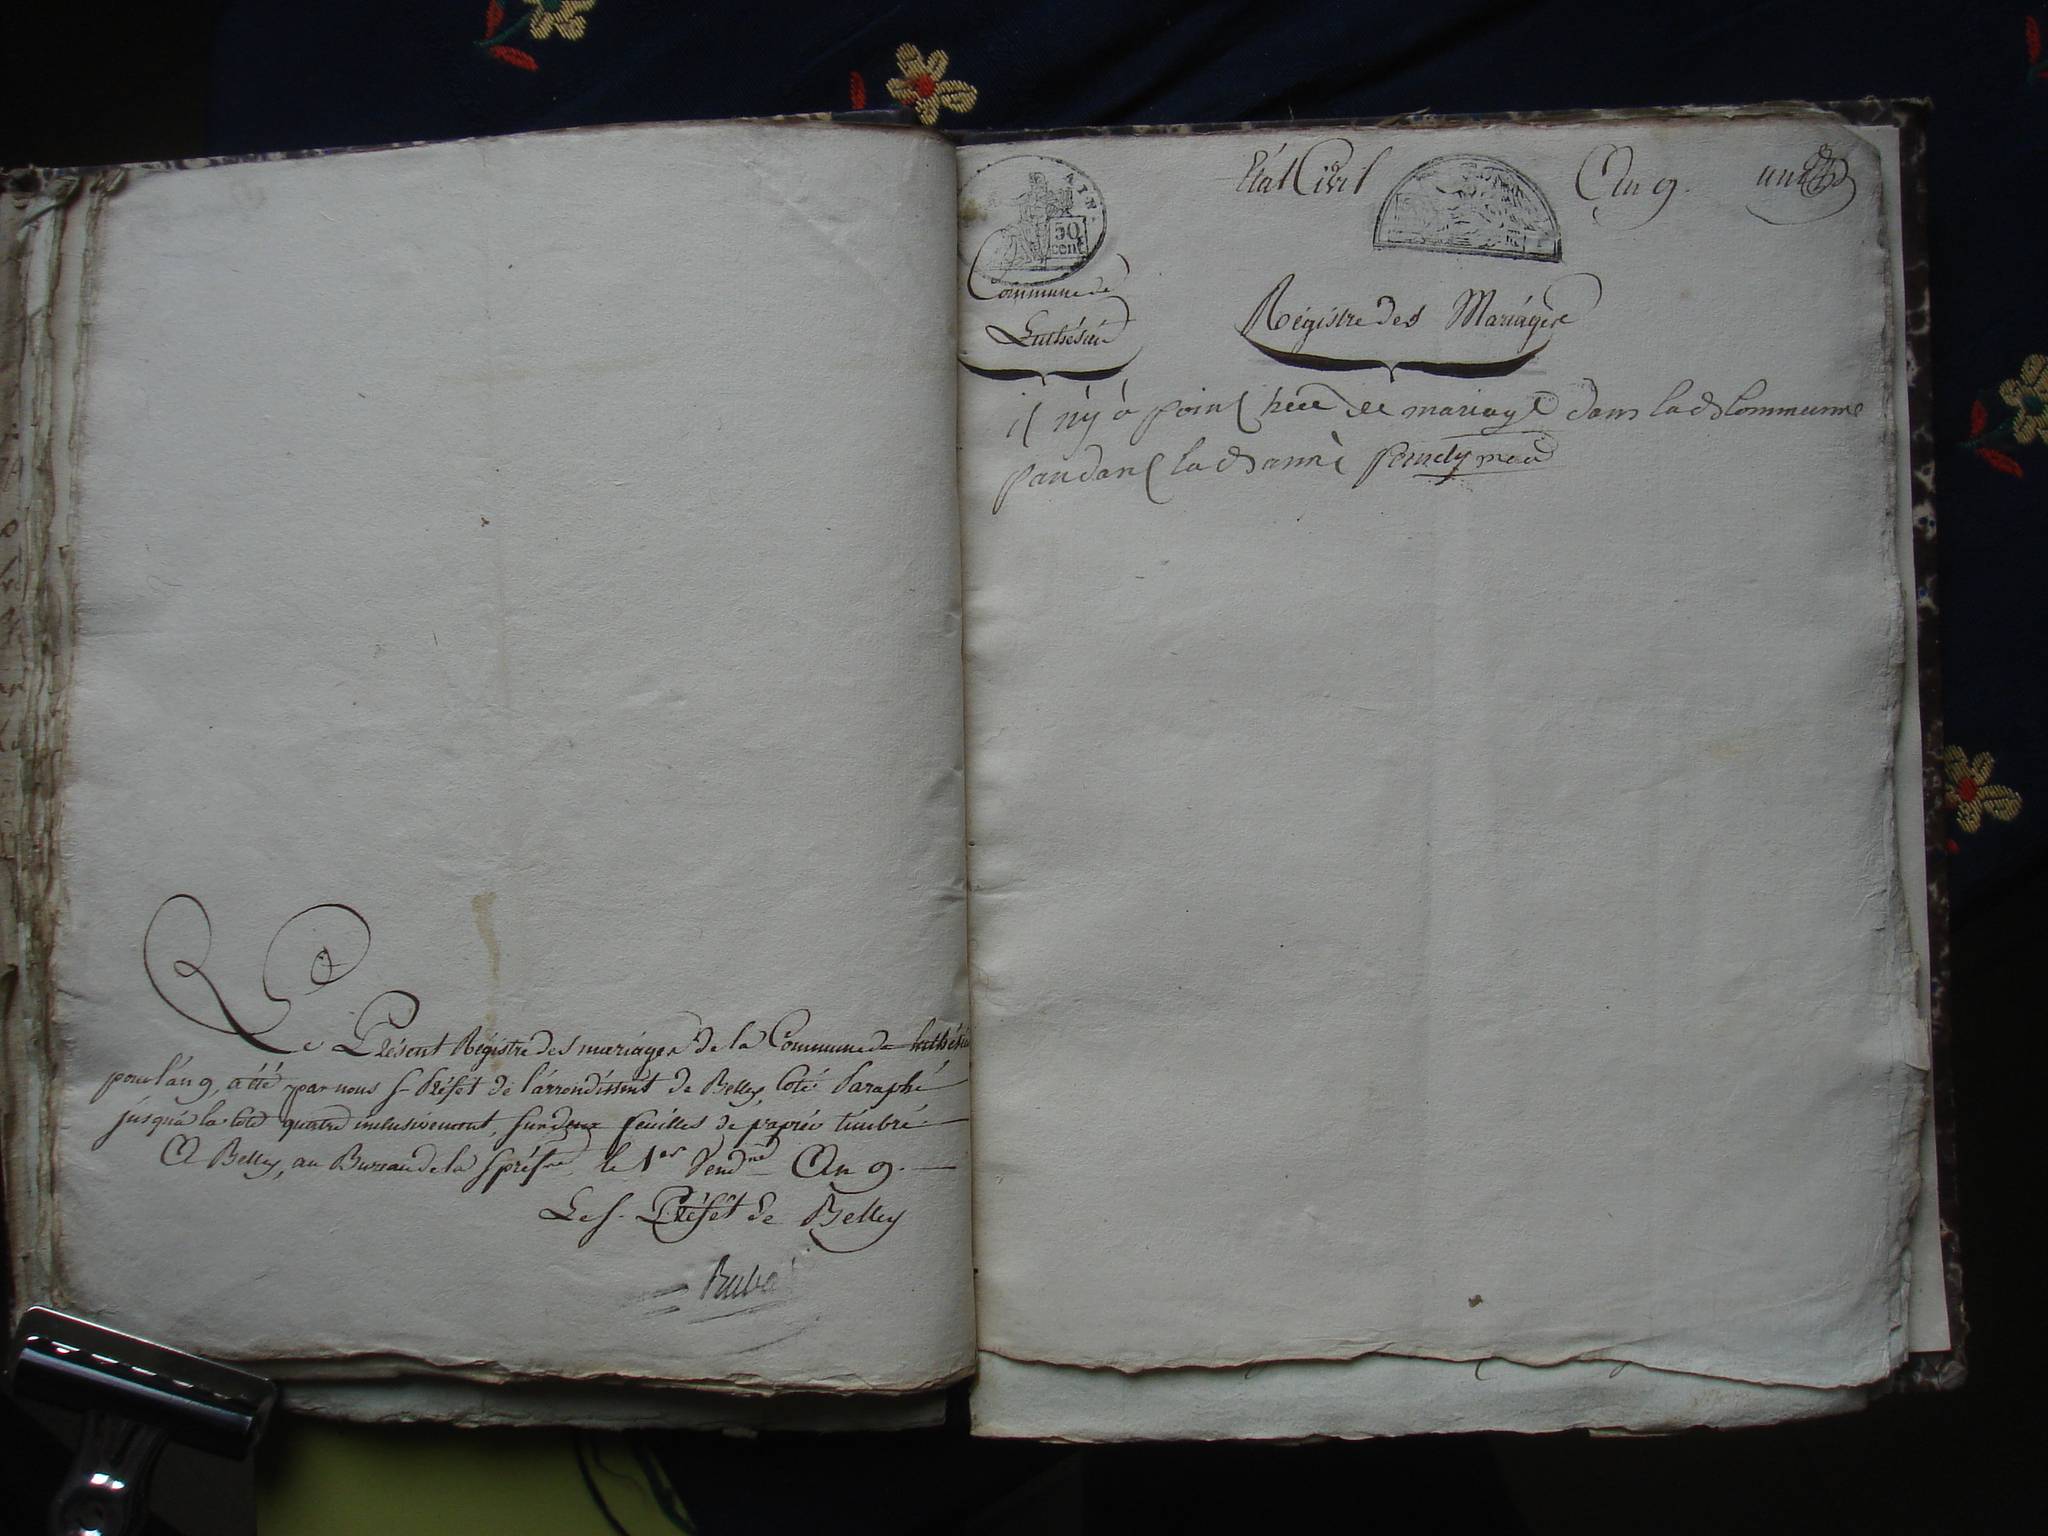 Le Présent Régistre des mariages de la Commune de Luthésieu
pour l'an 9, a été par nous S-Préfet de l'arrondissmt de Belley, Coté Paraphé
jusqu'à la cote quatre inclusivement, sur deux feuilles de papier timbré.
A Belley, au Bureau de la Spréfre le 1er Vendre An 9.
Le S. Préfet de Belley
État Civil
An 9.
un
50
cent
Commune de
Luthésieu
Régistre des Mariages
il n'y a point heu de mariage dans lad Commune
pandant lad anné